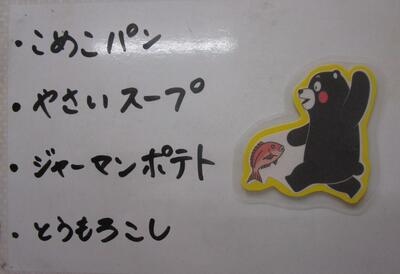 ・こめこパン
・やさいスープ
・ジャーマンポテト
・とうもろこし